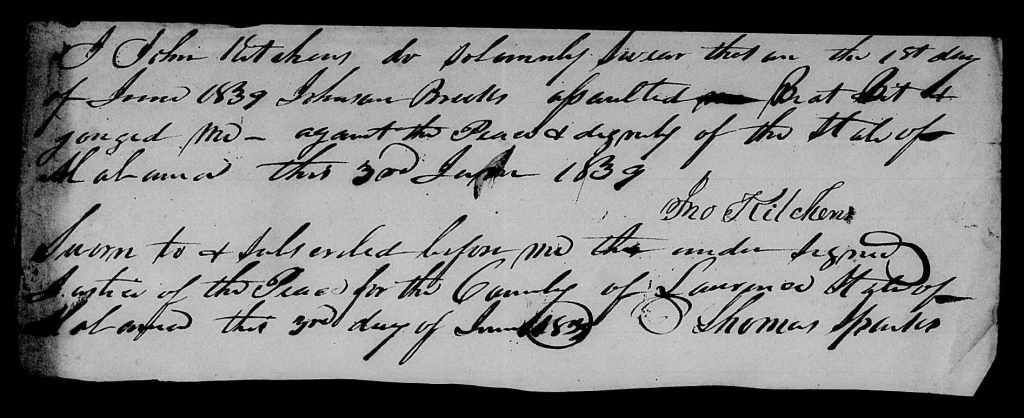 I John Kitchens do Solamnly Swear that on the 1st day
of June 1839 Johnson Brooks assaulted Beat Bit &
gouged Me - against the Peace & dignity of the State of
Alabama this 3rd June 1839
Jno Kitchens
Sworn to & Subscribed before me the under Signed
Justice of the Peace for the County of Laurence State of
Alabama this 3rd day of June 1839 Thomas Sparks